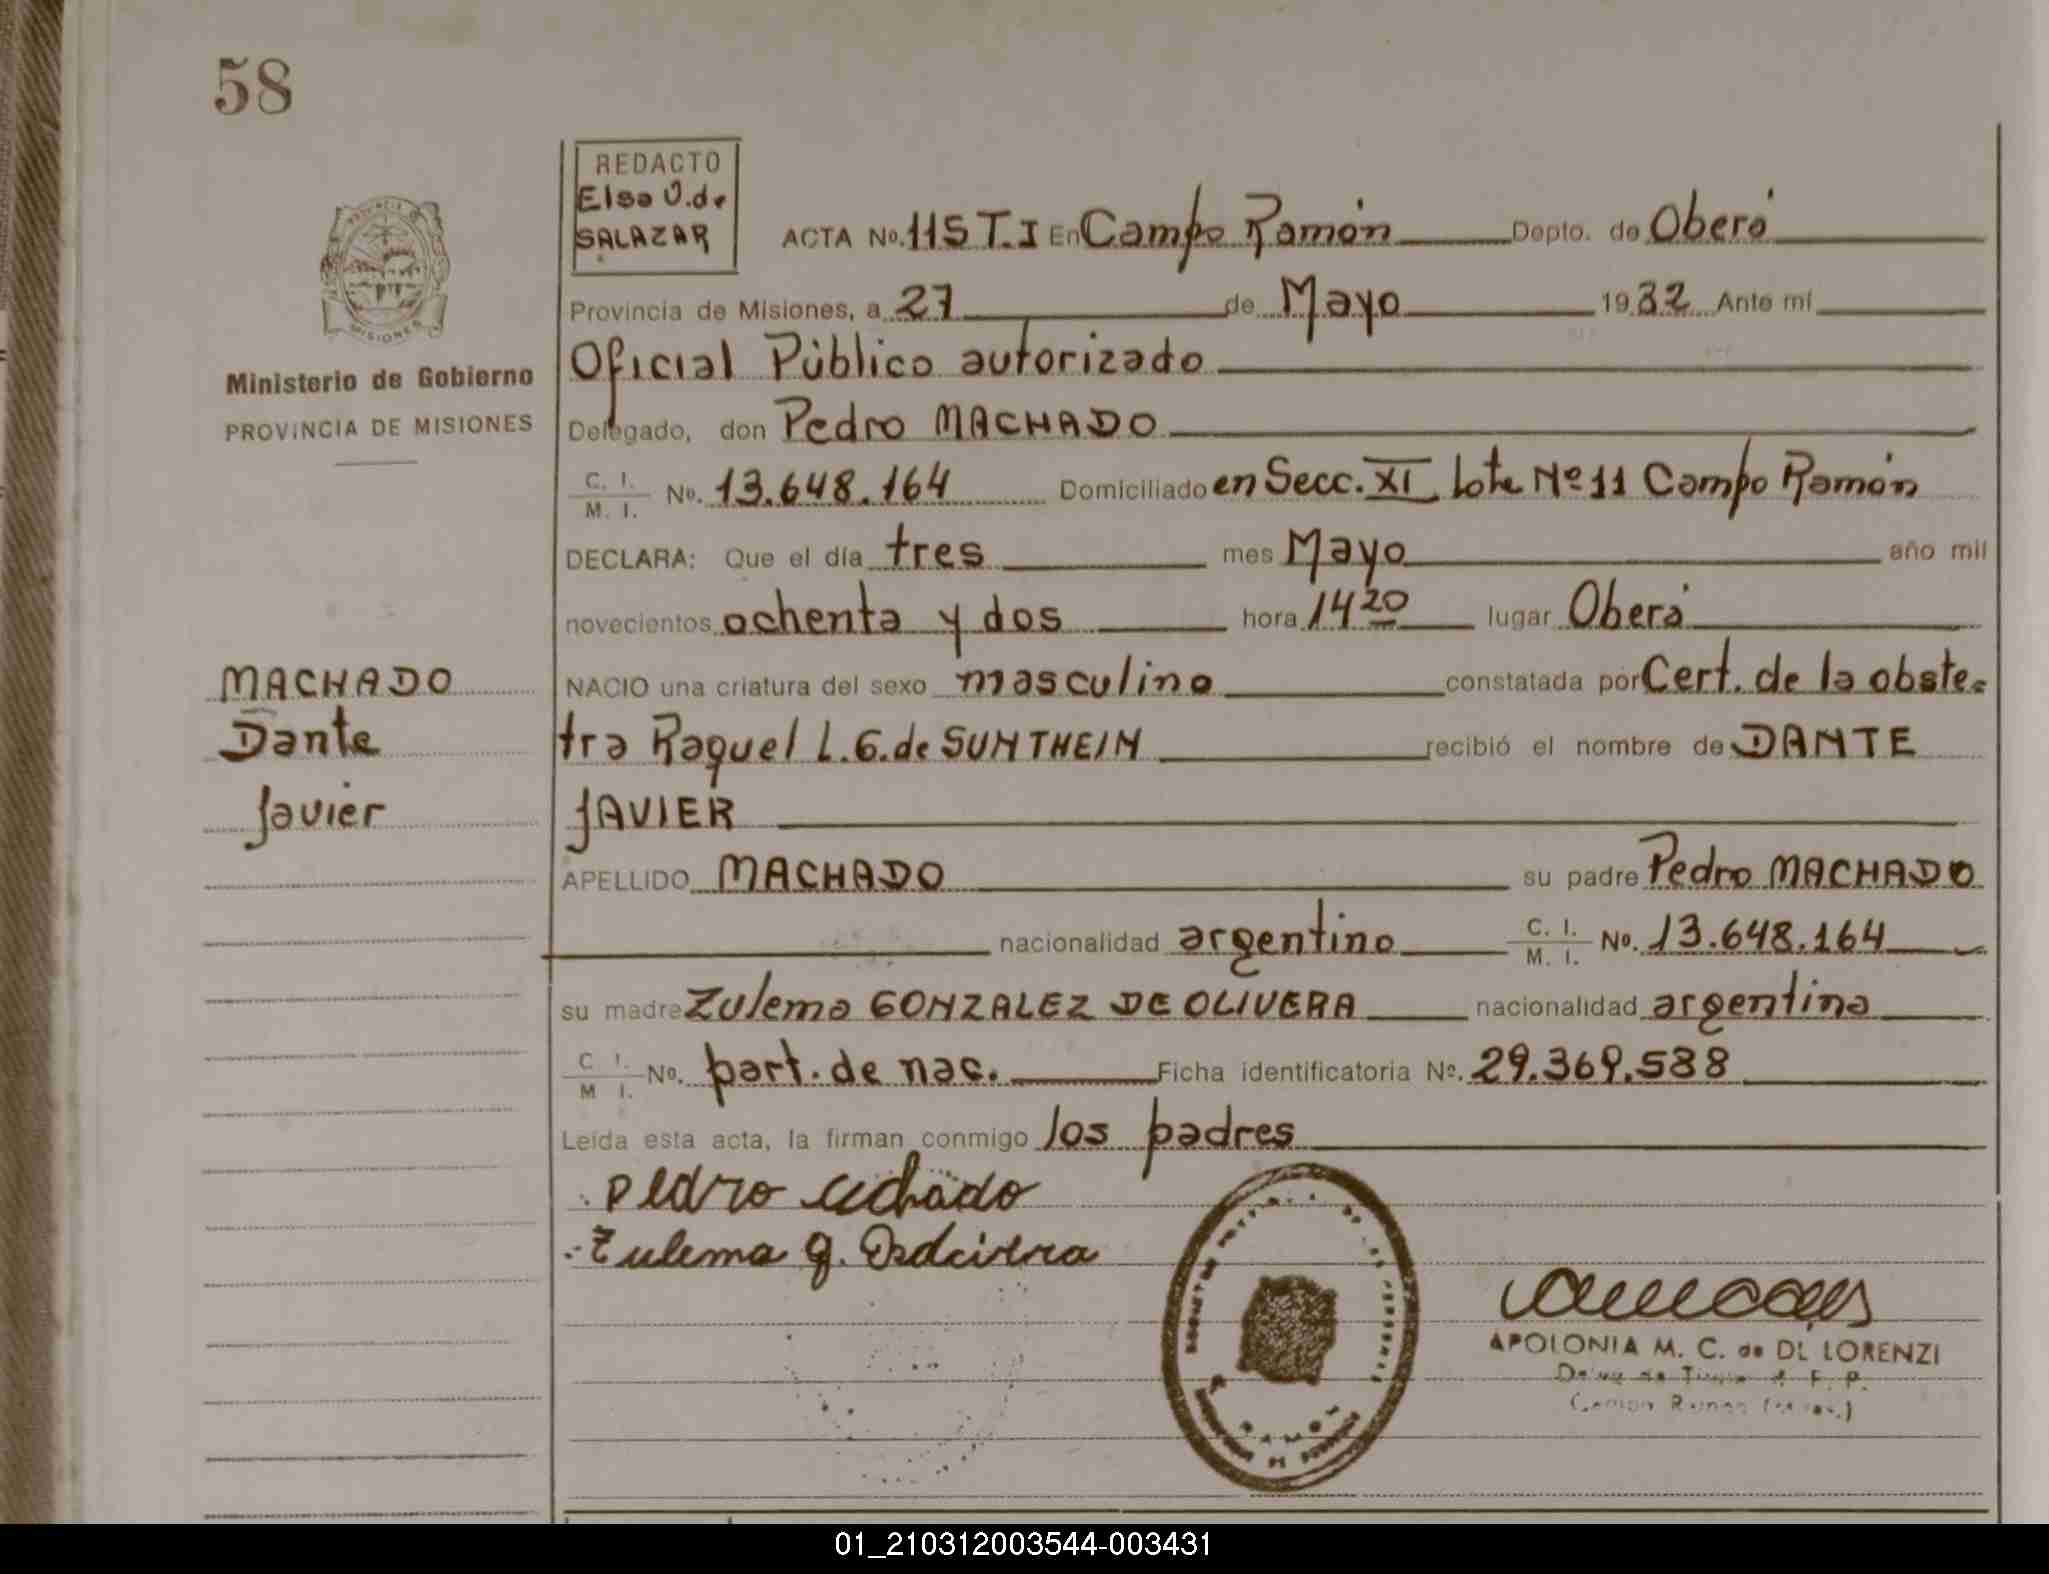 58
REDACTO
Elsa O. de
SALAZAR
ACTA No. 115 T. I En Campo Ramón Depto. de Oberá
Provincia de Misiones, a 27 de Mayo 1982 Ante mí
Oficial Público autorizado
Ministerio de Gobierno
PROVINCIA DE MISIONES
Delegado, don Pedro MACHADO
C. I. M. I. No. 13.648.164 Domiciliado en Secc. XI Lote Nº 11 Campo Ramón
DECLARA: Que el día tres mes Mayo año mil
novecientos ochenta y dos hora 14 20 lugar Oberá
MACHADO
Dante
Javier
NACIO una criatura del sexo masculino constatada por Cert. de la obste-
tra Raquel L. G. de SUNTHEIM recibió el nombre de DANTE
JAVIER
APELLIDO MACHADO su padre Pedro MACHADO
nacionalidad argentino C. I. M. I. No. 13.648.164
su madre Zulema GONZALEZ DE OLIVERA nacionalidad argentina
C. I. M. I. No. part. de nac. Ficha identificatoria No. 29.369.588
Leída esta acta, la firman conmigo los padres
Pedro
Zulema G.
APOLONIA M. C. de DL LORENZI
MISIONES
01_210312003544-003431